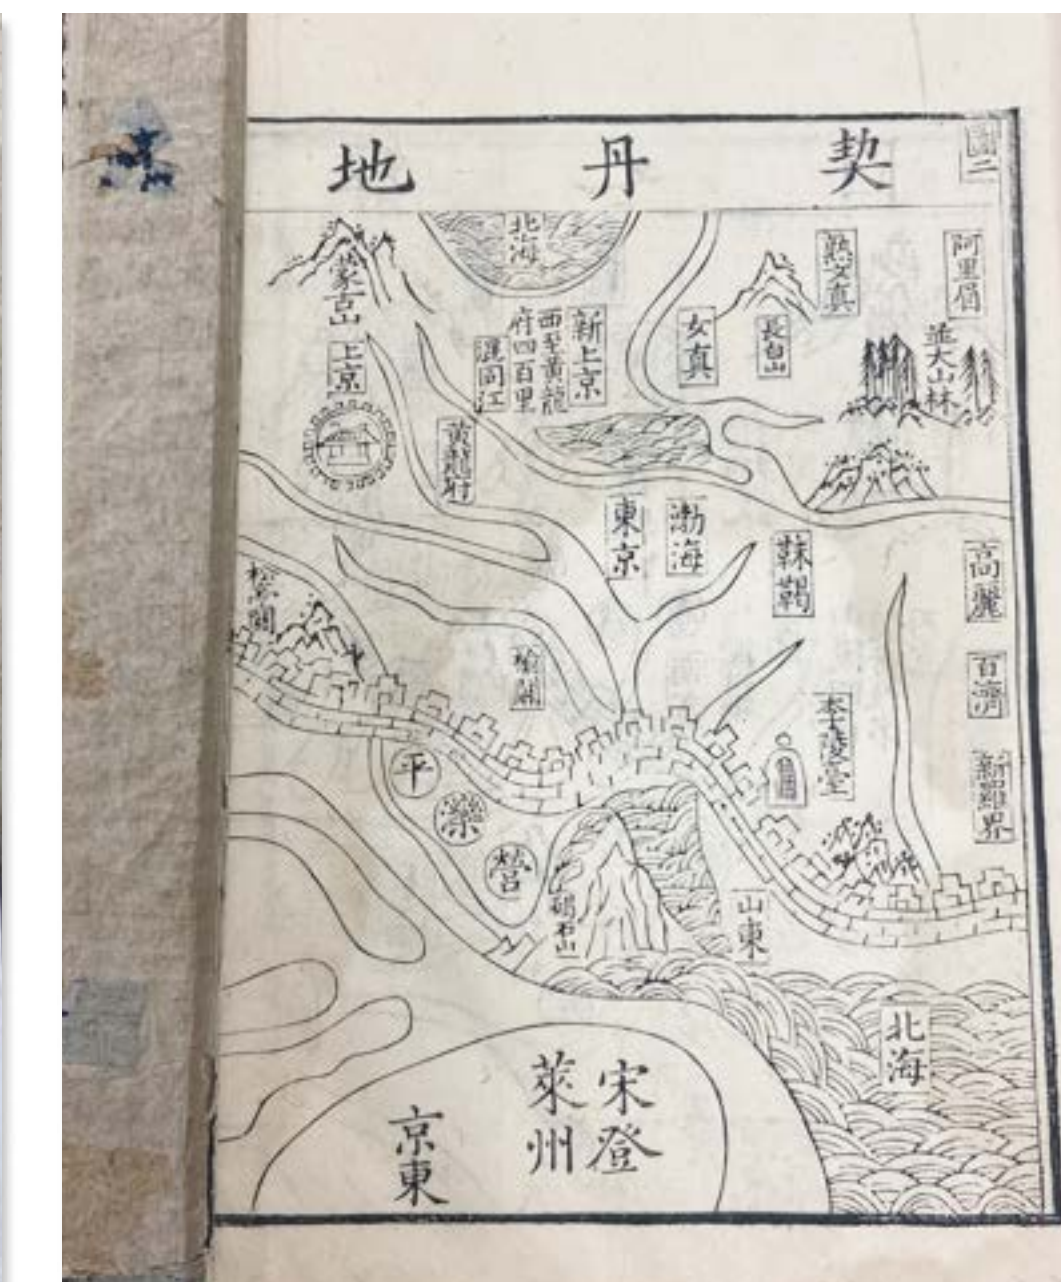 圖二
契丹地
阿里眉
熟女真
長白山
女真
並大山林
北海
蒙古山
新上京
西至黃龍
府四百里
混同江
上京
黃龍府
東京
渤海
靺鞨
高麗
百濟
新羅界
松亭關
榆關
李陵臺
平
灤
營
碣石山
山東
北海
宋登
萊州
京東